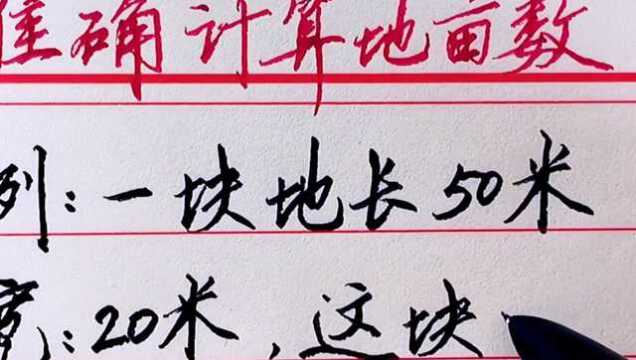 准确计算地亩数
列:一块地长50米
宽:20米,这块